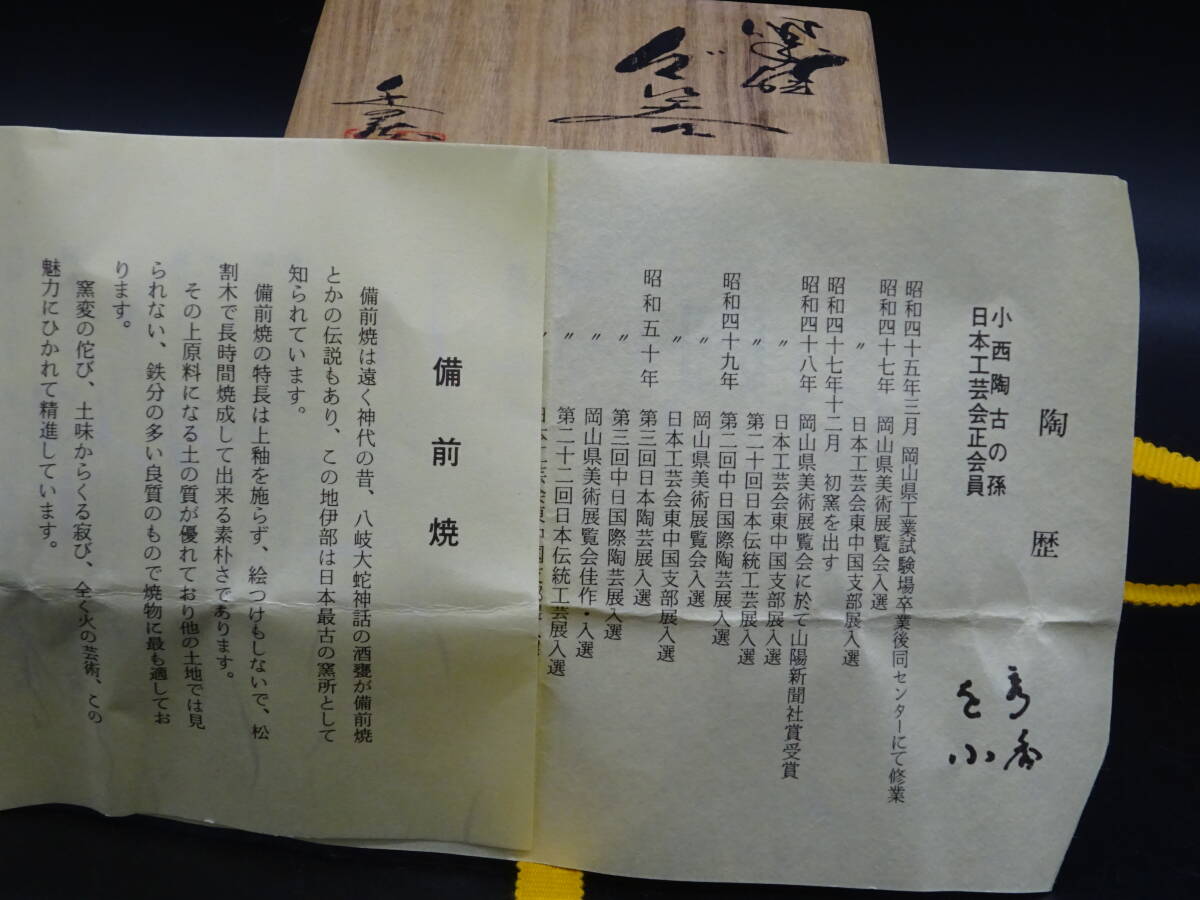 陶歴
小西陶古の孫
日本工芸会正会員
昭和四十五年三月 岡山県工業試験場卒業後同センターにて修業
昭和四十七年 岡山県美術展覧会入選
〃 日本工芸会東中国支部展入選
昭和四十七年十二月 初窯を出す
昭和四十八年 岡山県美術展覧会に於て山陽新聞社賞受賞
〃 日本工芸会東中国支部展入選
〃 第二十回日本伝統工芸展入選
昭和四十九年 第二回中日国際陶芸展入選
〃 岡山県美術展覧会入選
〃 日本工芸会東中国支部展入選
昭和五十年 第三回日本陶芸展入選
〃 第三回中日国際陶芸展入選
〃 岡山県美術展覧会佳作・入選
〃 第二十二回日本伝統工芸展入選
備前焼
備前焼は遠く神代の昔、八岐大蛇神話の酒甕が備前焼
とかの伝説もあり、この地伊部は日本最古の窯所として
知られています。
備前焼の特長は上釉を施らず、絵つけもしないで、松
割木で長時間焼成して出来る素朴さであります。
その上原料になる土の質が優れており他の土地では見
られない、鉄分の多い良質のもので焼物に最も適してお
ります。
窯変の侘び、土味からくる寂び、全く火の芸術、この
魅力にひかれて精進しています。